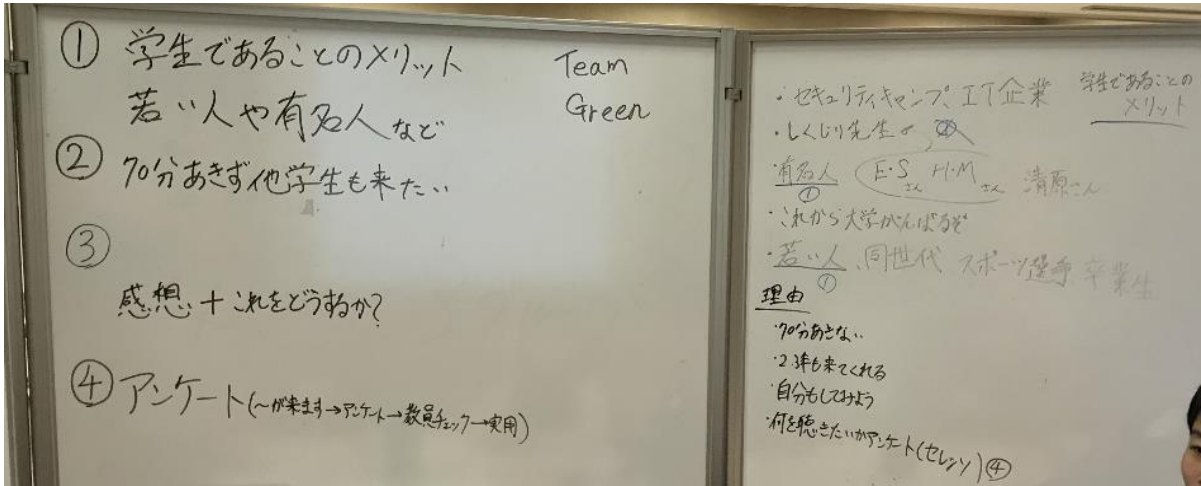 ① 学生であることのメリット
若い人や有名人など
Team
Green
② 70分あきず他学生も来たい
③
感想 + これをどうするか?
④ アンケート(〜が来ます→アンケート→教員チェック→実用)
・セキュリティキャンプ、IT企業
学生であることの
メリット
・しくじり先生
・有名人 E・Sさん H・Mさん 清原さん
①
・これから大学がんばるぞ
・若い人、同世代 スポーツ選手 卒業生
①
理由
・70分あきない
・2.3年も来てくれる
・自分もしてみよう
・何を聴きたいかアンケート(セレッソ)④